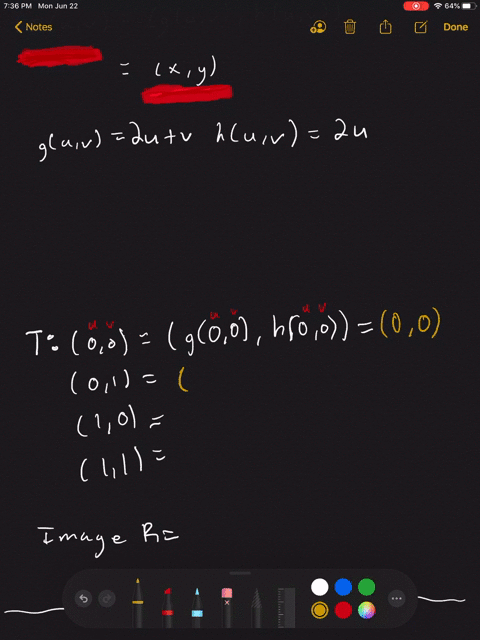 7:36 PM Mon Jun 22
64%
Notes
Done
= (x,y)
g(u,v) = 2u+v h(u,v) = 2u
u v u v u v
T: (0,0) = (g(0,0), h(0,0)) = (0,0)
(0,1) = (
(1,0) =
(1,1) =
Image R=